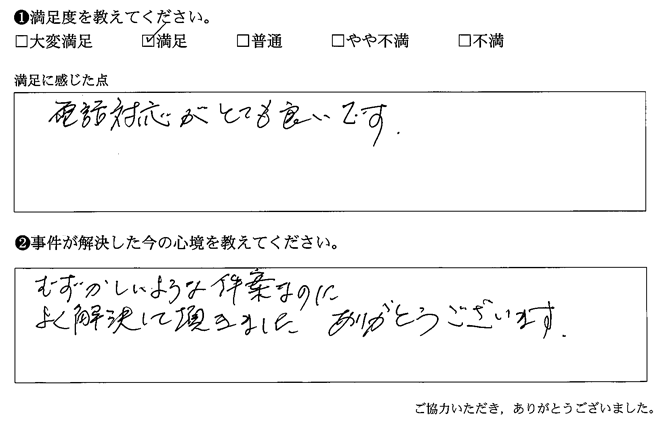 ❶満足度を教えてください。
□大変満足 ☑満足 □普通 □やや不満 □不満
満足に感じた点
電話対応がとても良いです.
❷事件が解決した今の心境を教えてください。
むずかしいような件案なのに
よく解決して頂きました ありがとうございます.
ご協力いただき，ありがとうございました。